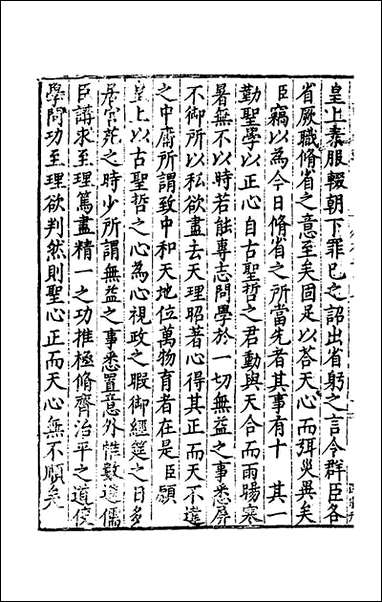 皇上素服輟朝下罪已之詔出省躬之言令群臣各
省厥職脩省之意至矣固足以荅天心而弭災異矣
臣竊以為今日脩省之所當先者其事有十 其一
勤聖學以正心自古聖哲之君動與天合而雨暘寒
暑無不以時若能專志問學於一切無益之事悉屏
不御所以私欲盡去天理昭著心得其正而天不違
之中庸所謂致中和天地位萬物育者在是臣願
皇上以古聖哲之心為心視政之暇御經筵之日多
居宮苑之時少所謂無益之事悉置意外惟數進儒
臣講求至理篤盡精一之功推極脩齊治平之道使
學問功至理欲判然則聖心正而天心無不順矣